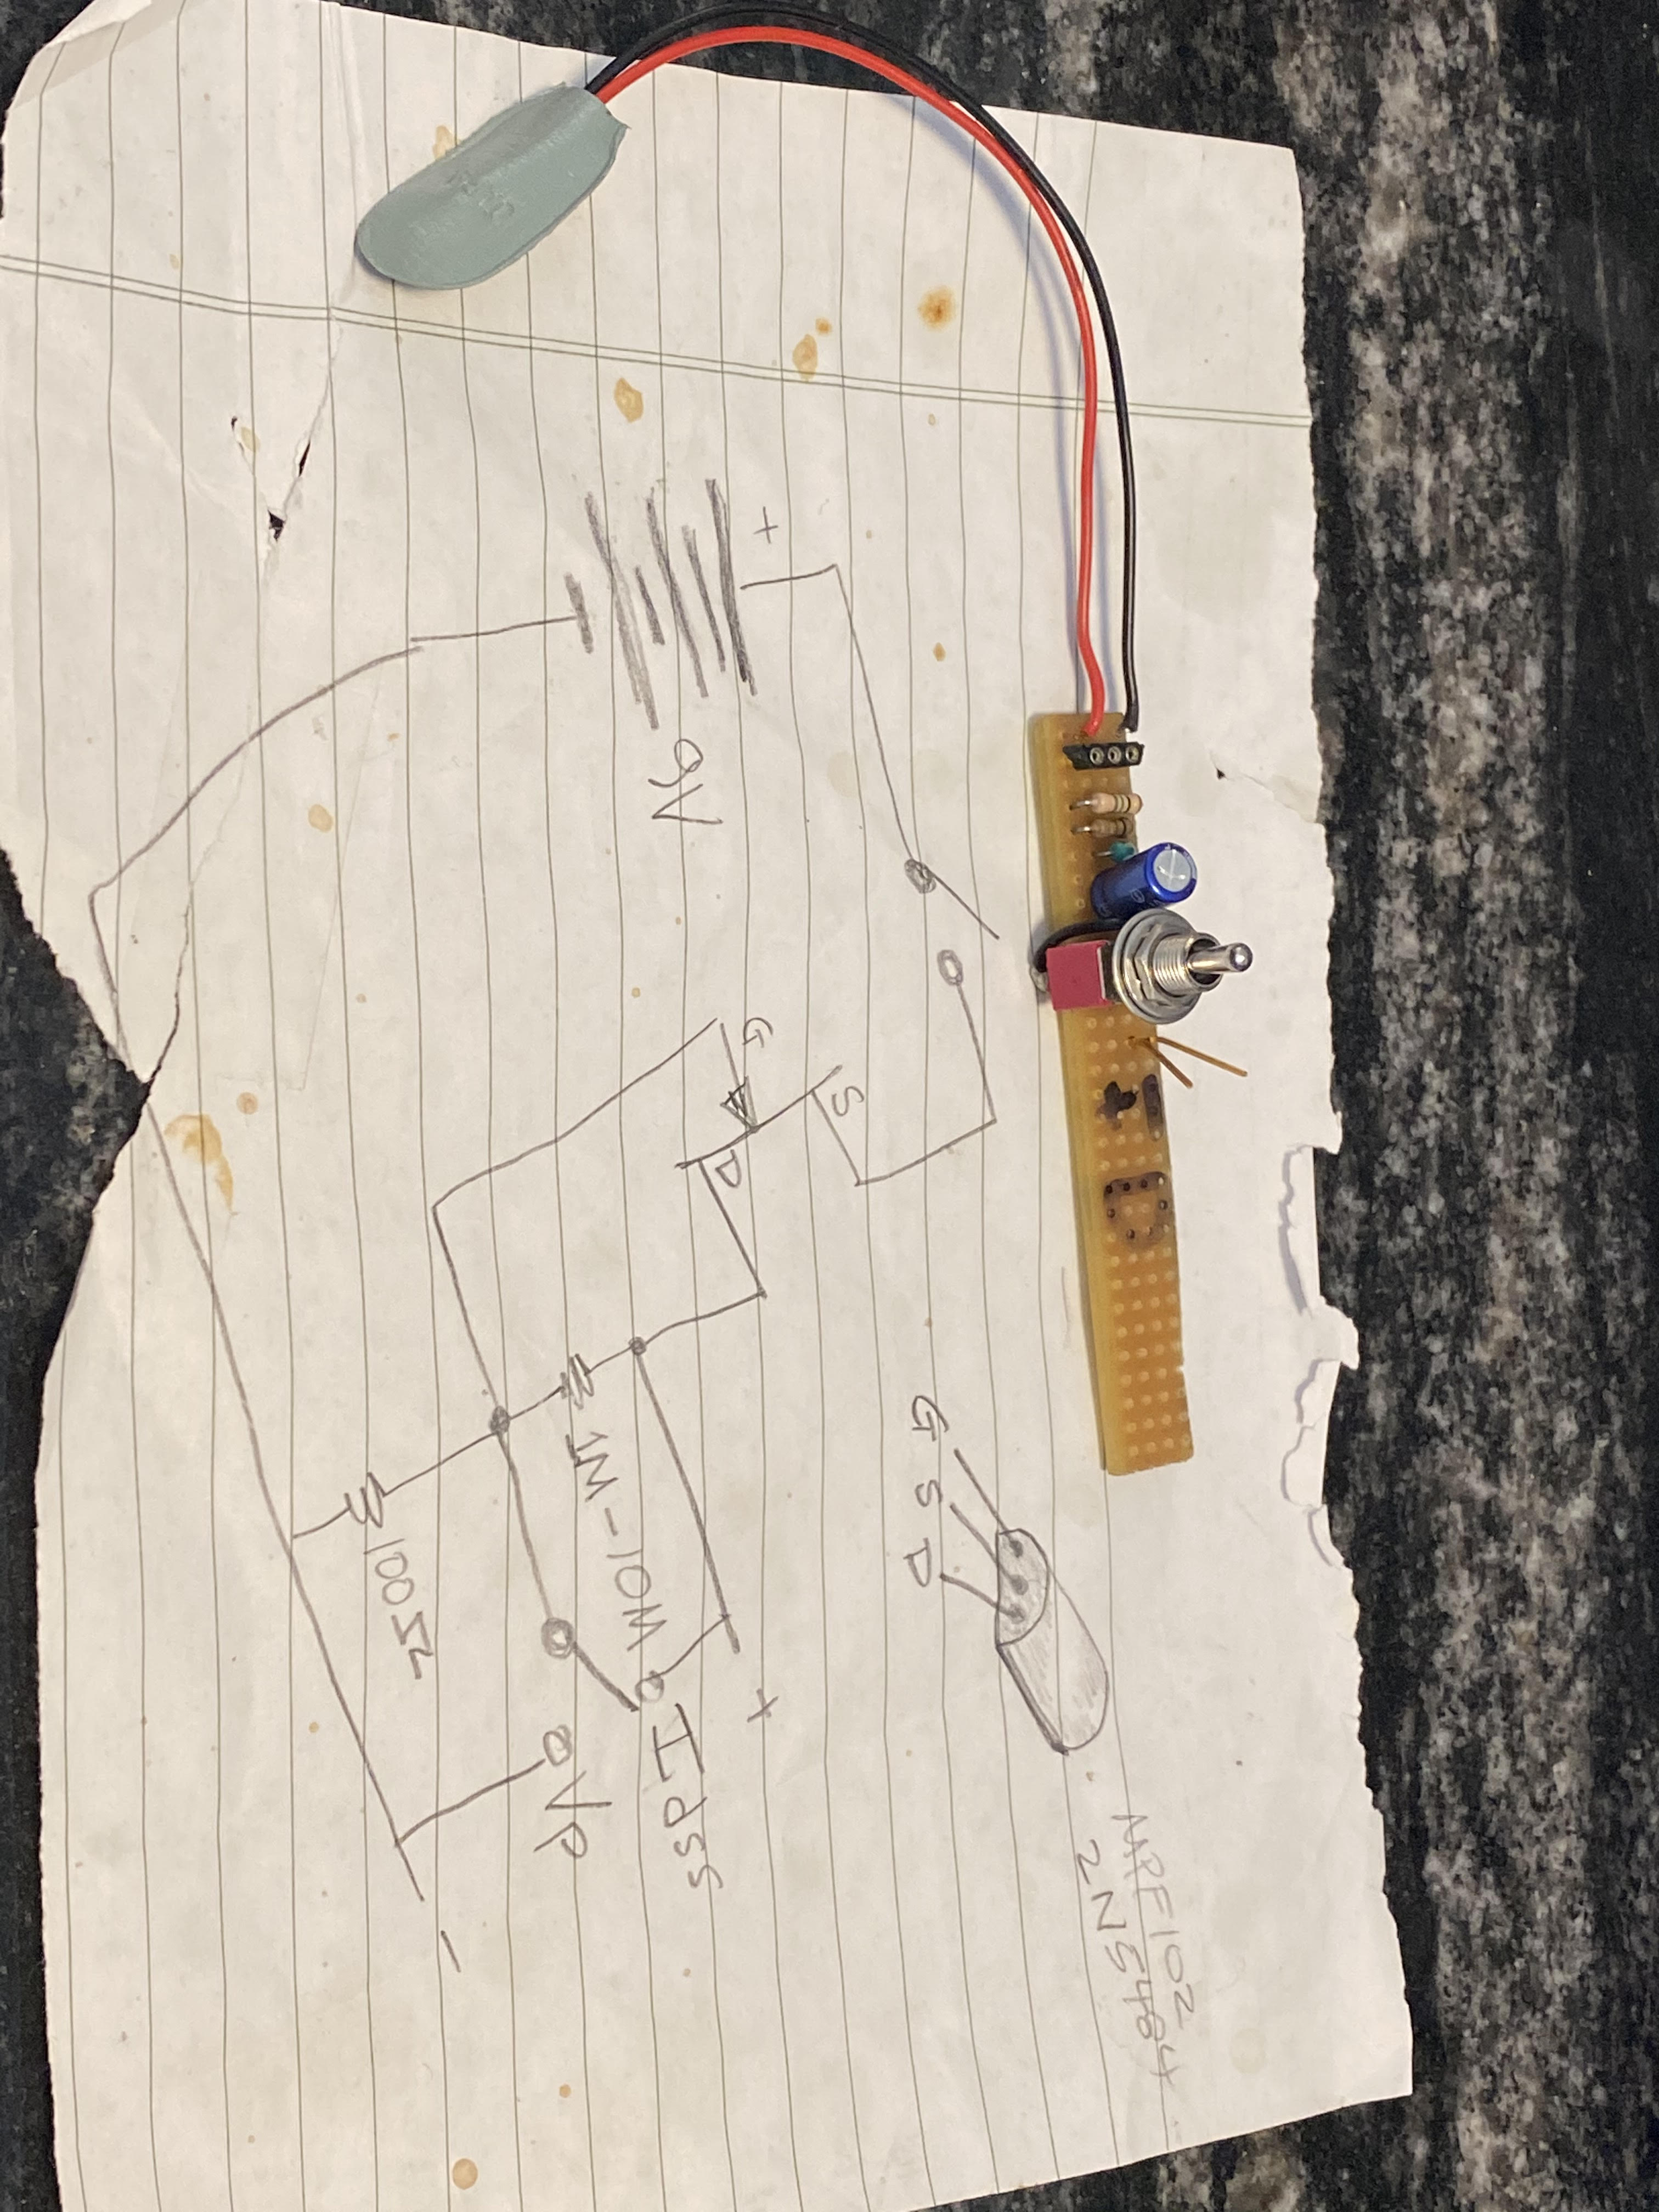 MPF102
2N5484
G S D
S
+
G
D
+
9V
Idss
1M-10M
Vp
-
100Ω